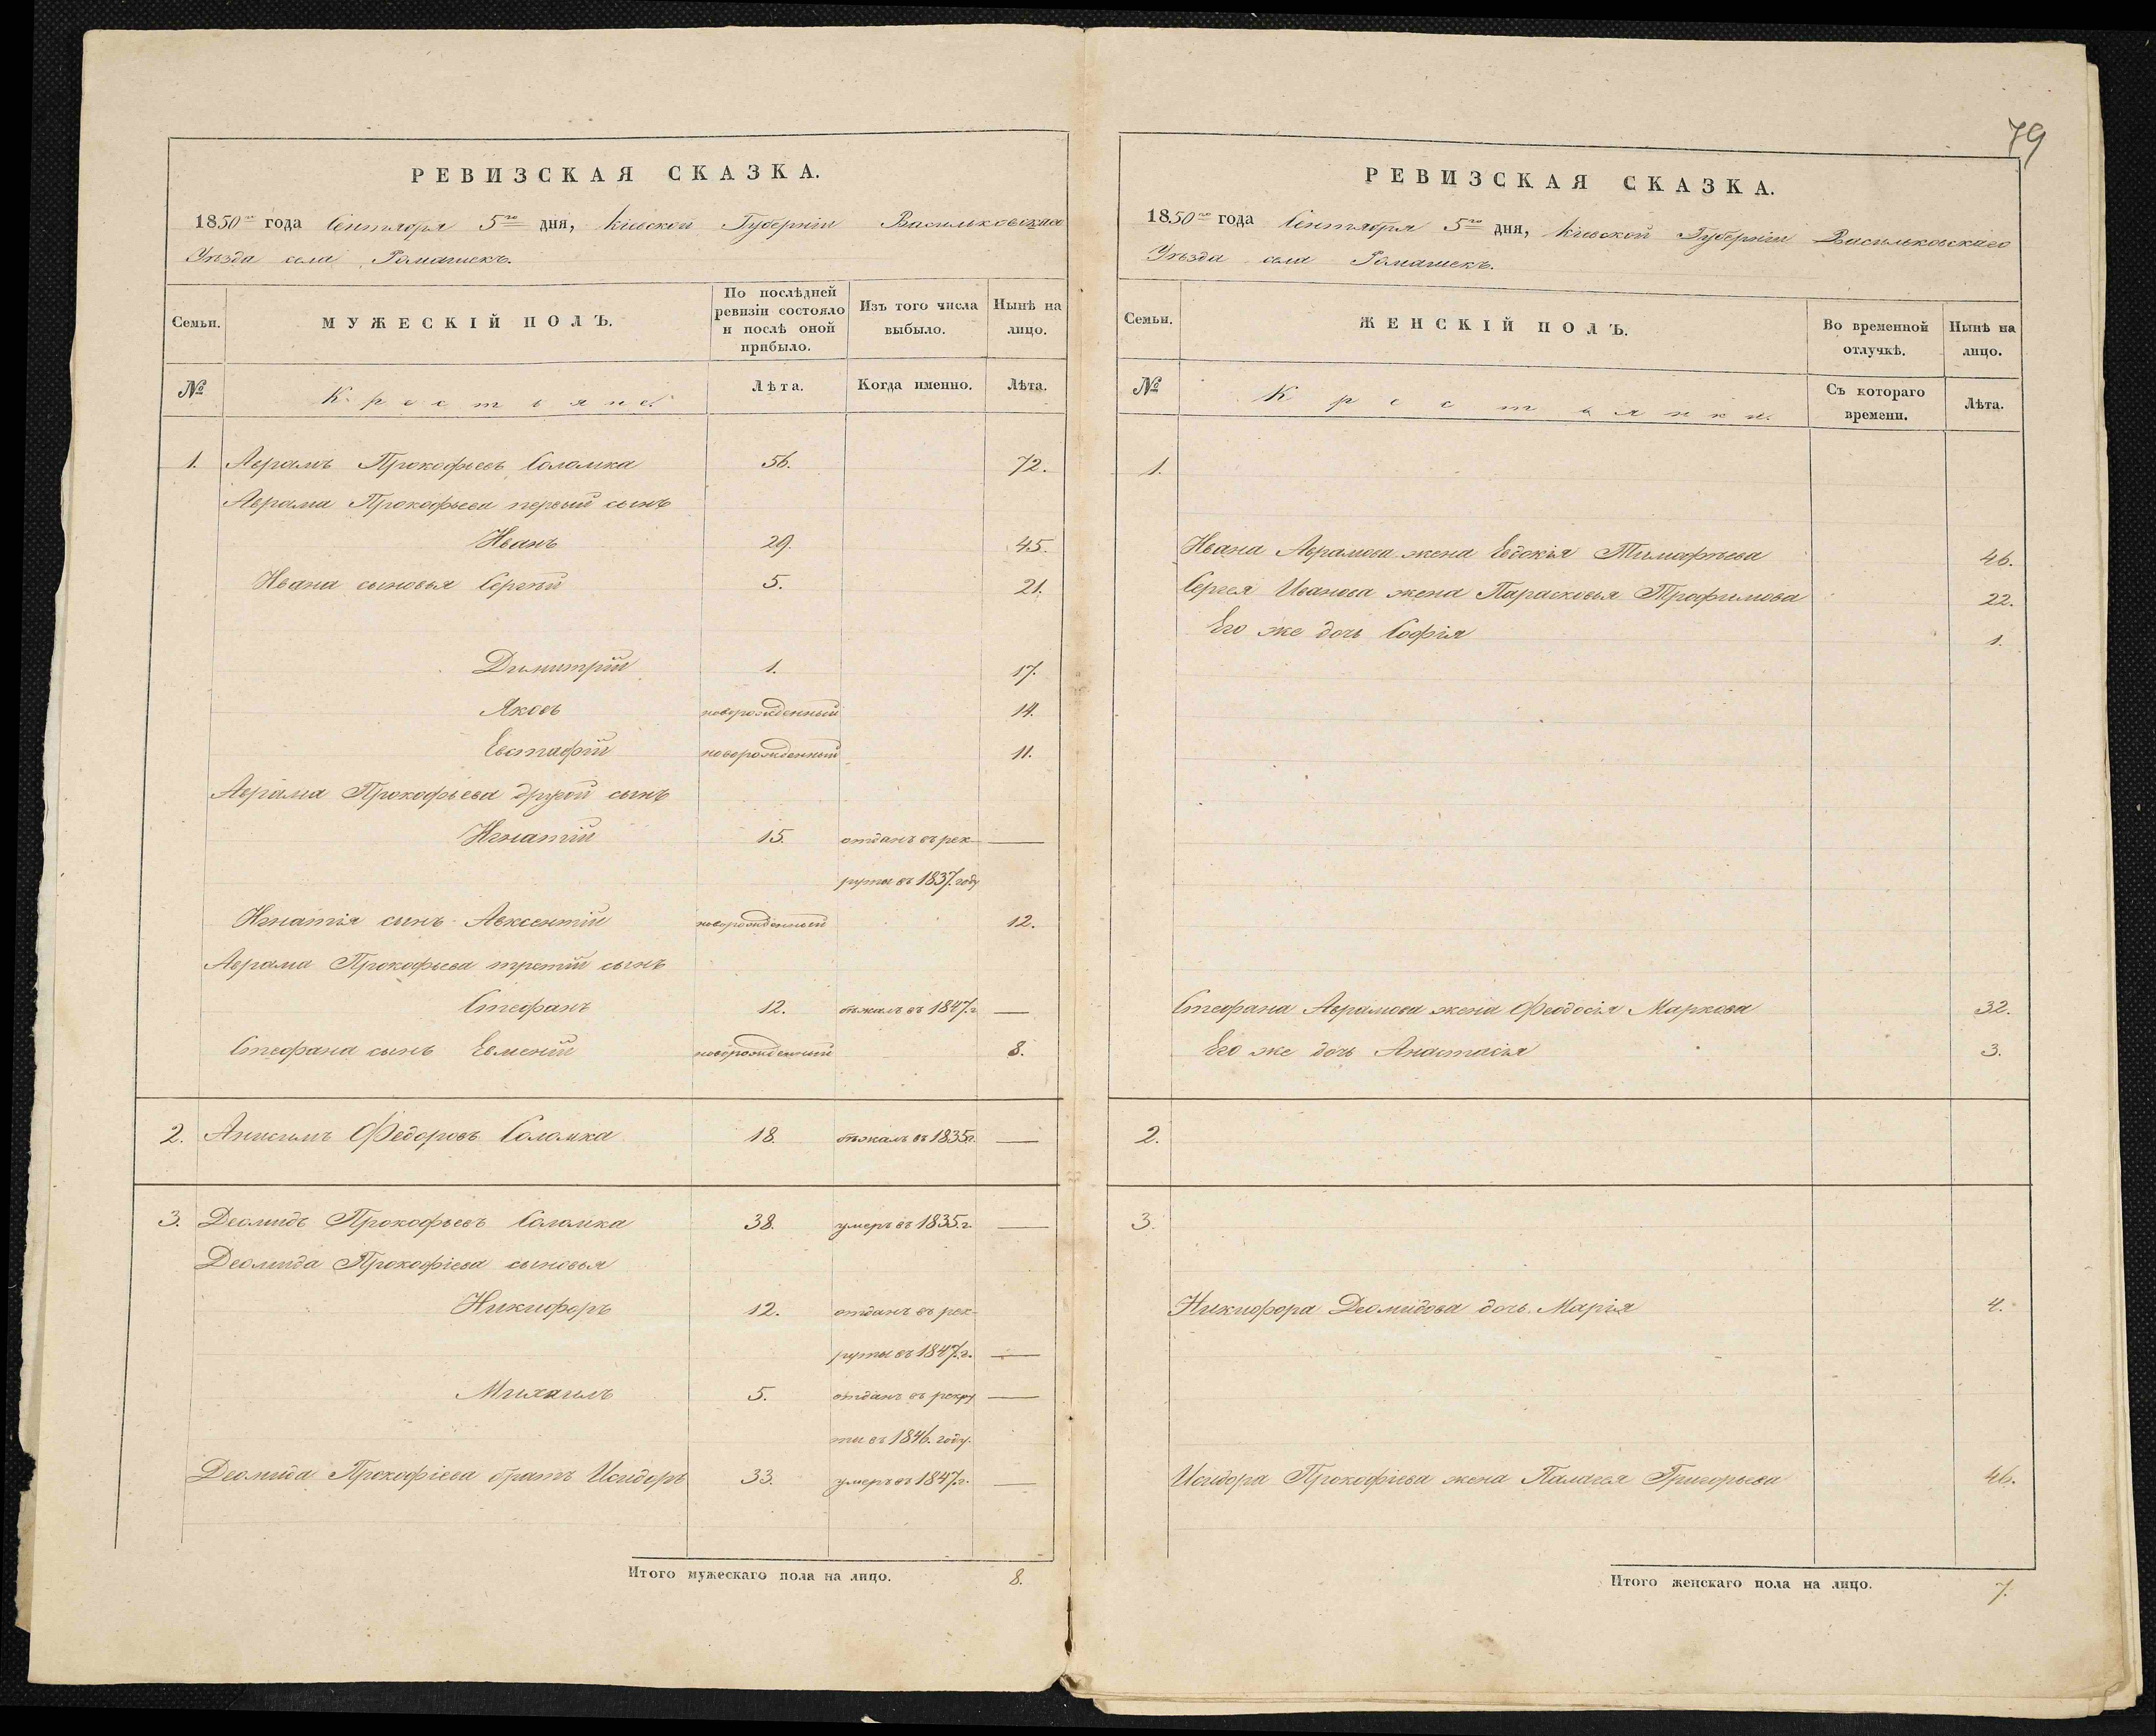 79
РЕВИЗСКАЯ СКАЗКА.
1850го года Сентября 5го дня, Кіевской Губерніи Васильковскаго
Уѣзда села Ромашекъ.
Семьи.
МУЖЕСКІЙ ПОЛЪ.
По послѣдней ревизіи состояло и послѣ оной прибыло.
Изъ того числа выбыло.
Нынѣ на лицо.
№
Крестьяне.
Лѣта.
Когда именно.
Лѣта.
1. Аврамъ Прокофьевъ Соломка 56. 72.
Аврама Прокофьева первый сынъ
Иванъ 29. 45.
Ивана сыновья Сергѣй 5. 21.
Димитрій 1. 17.
Яковъ новорожденный 14.
Евстафій новорожденный 11.
Аврама Прокофьева другой сынъ
Игнатій 15. отданъ въ рек-
руты въ 1837. году
Игнатія сынъ Авксентій новорожденный 12.
Аврама Прокофьева третій сынъ
Стефанъ 12. бѣжалъ въ 1847. г
Стефана сынъ Евменій новорожденный 8.
2. Анисимъ Федоровъ Соломка 18. бѣжалъ въ 1835 г.
3. Деомидъ Прокофьевъ Соломка 38. умеръ въ 1835. г.
Деомида Прокофіева сыновья
Никифоръ 12. отданъ въ рек-
руты въ 1847. г.
Михаилъ 5. отданъ въ рекру
ты въ 1846. году.
Деомида Прокофіева братъ Исидоръ 33. умеръ въ 1847. г.
Итого мужескаго пола на лицо. 8.
РЕВИЗСКАЯ СКАЗКА.
1850го года Сентября 5го дня, Кіевской Губерніи Васильковскаго
Уѣзда села Ромашекъ.
Семьи.
ЖЕНСКІЙ ПОЛЪ.
Во временной отлучкѣ.
Нынѣ на лицо.
№
Крестьянки.
Съ котораго времени.
Лѣта.
1.
Ивана Аврамова жена Евдокія Тимофѣева 46.
Сергея Иванова жена Парасковья Трофимова 22.
Его же дочь Софія 1.
Стефана Аврамова жена Феодосія Маркова 32.
Его же дочь Анастасія 3.
2.
3.
Никифора Деомидова дочь Марія 4.
Исидора Прокофіева жена Палагея Григорьева 46.
Итого женскаго пола на лицо. 7.